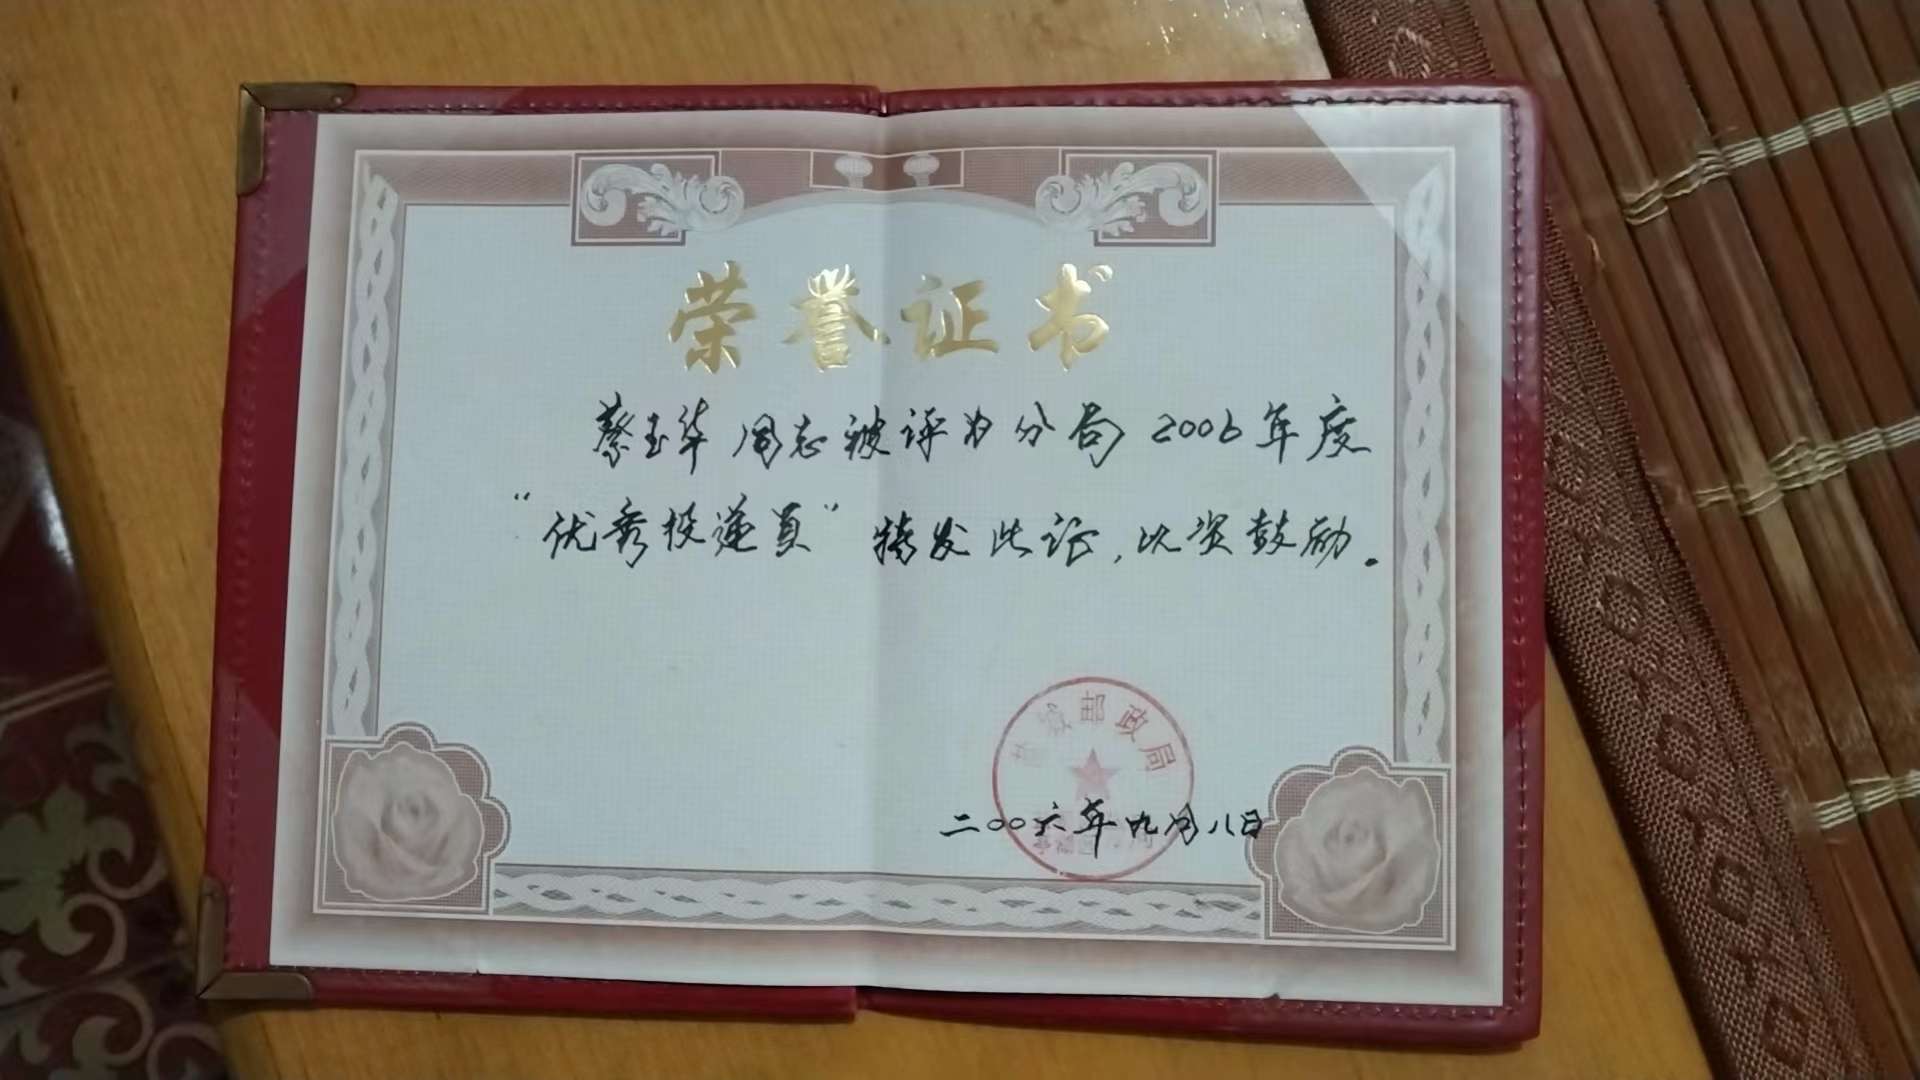 荣誉证书
蔡玉华同志被评为分局2006年度
“优秀投递员”特发此证,以资鼓励。
邮政局
二〇〇六年九月八日